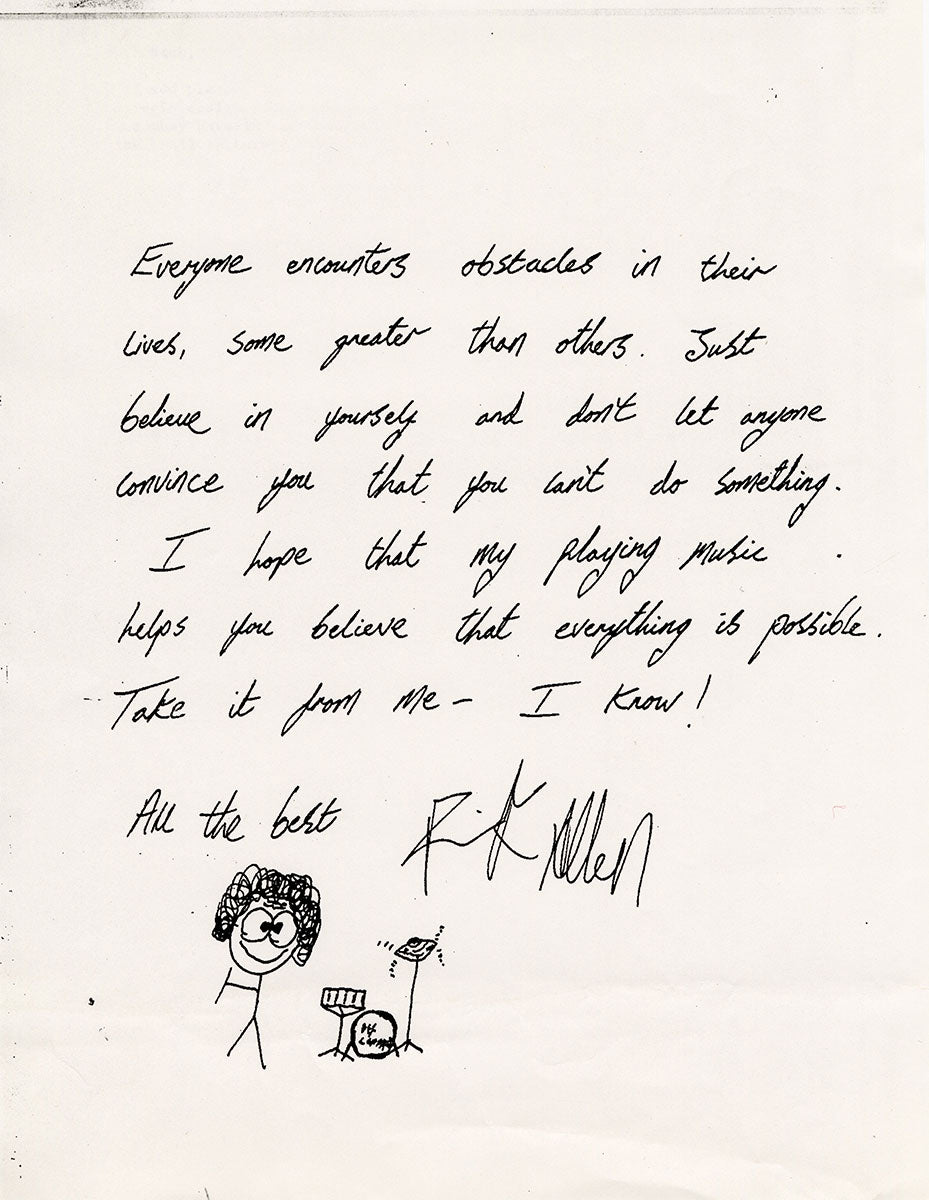 Everyone encounters obstacles in their
lives, some greater than others. Just
believe in yourself and don't let anyone
convince you that you can't do something.
I hope that my playing music
helps you believe that everything is possible.
Take it from me - I know!
All the best Rick Allen
Def
Leppard